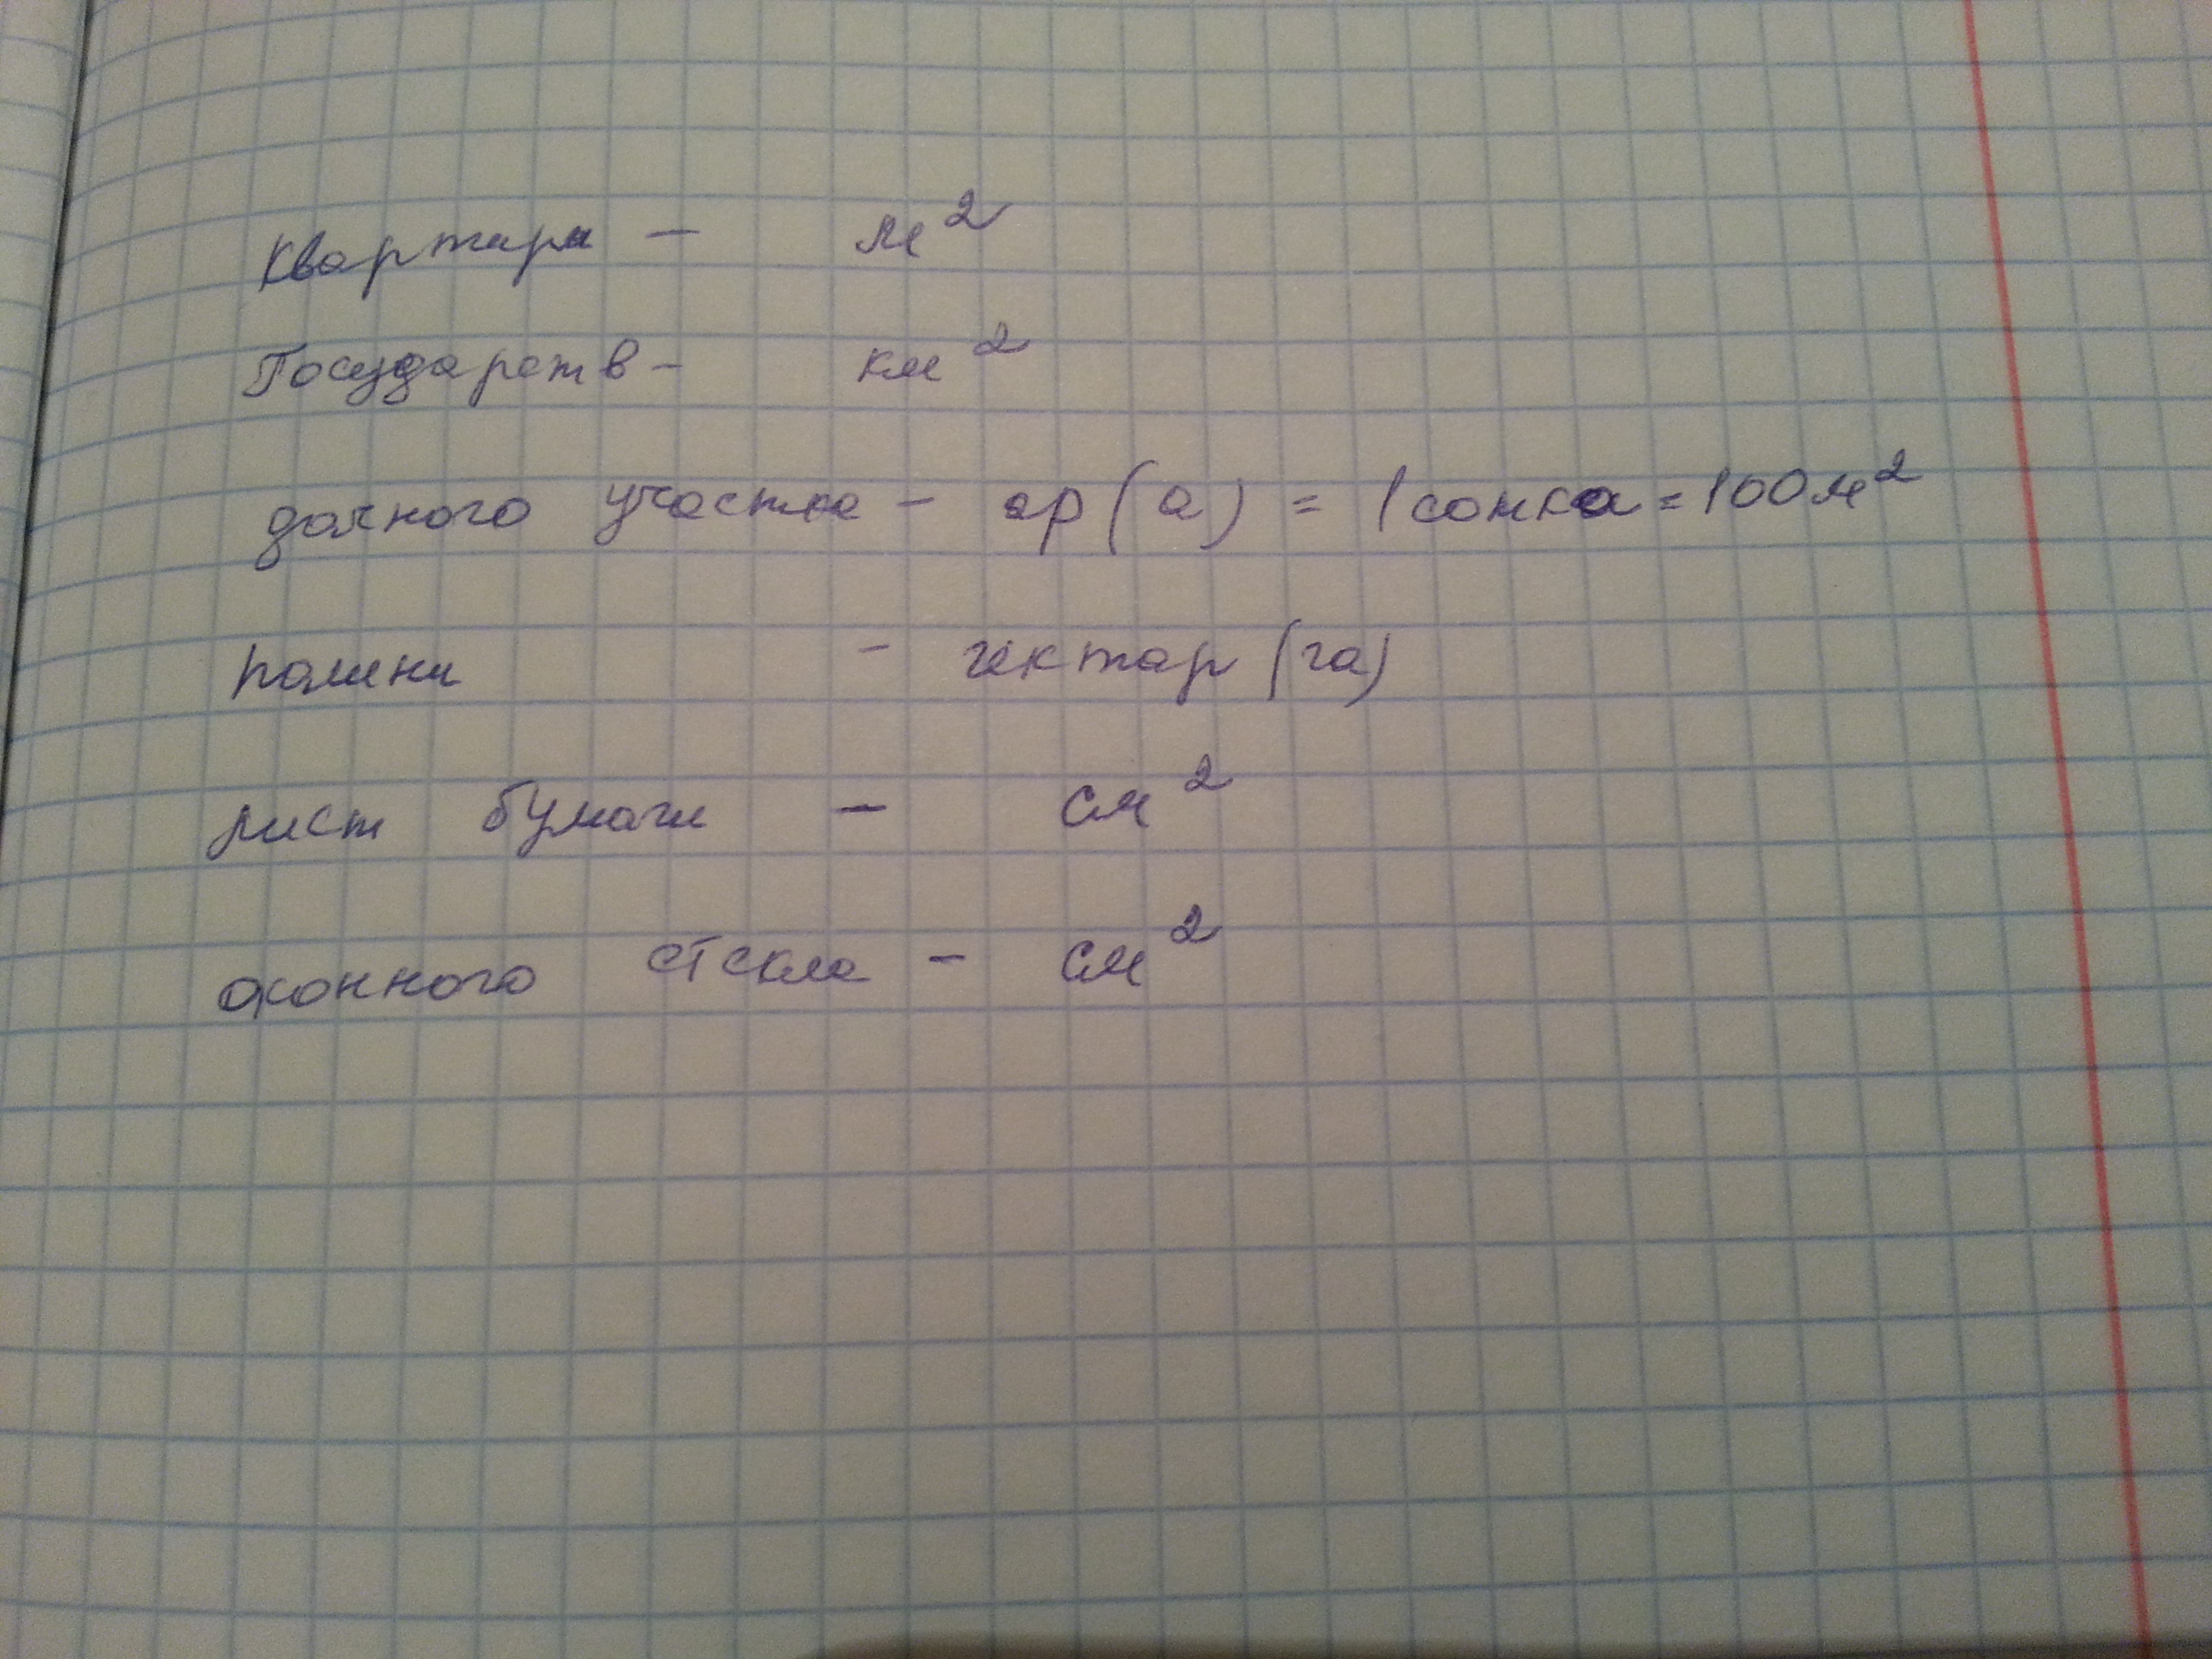 Квартиры – м²
Государств – км²
дачного участка – ар (а) = 1 сотка = 100 м²
пашни – гектар (га)
лист бумаги – см²
оконного стекла – см²